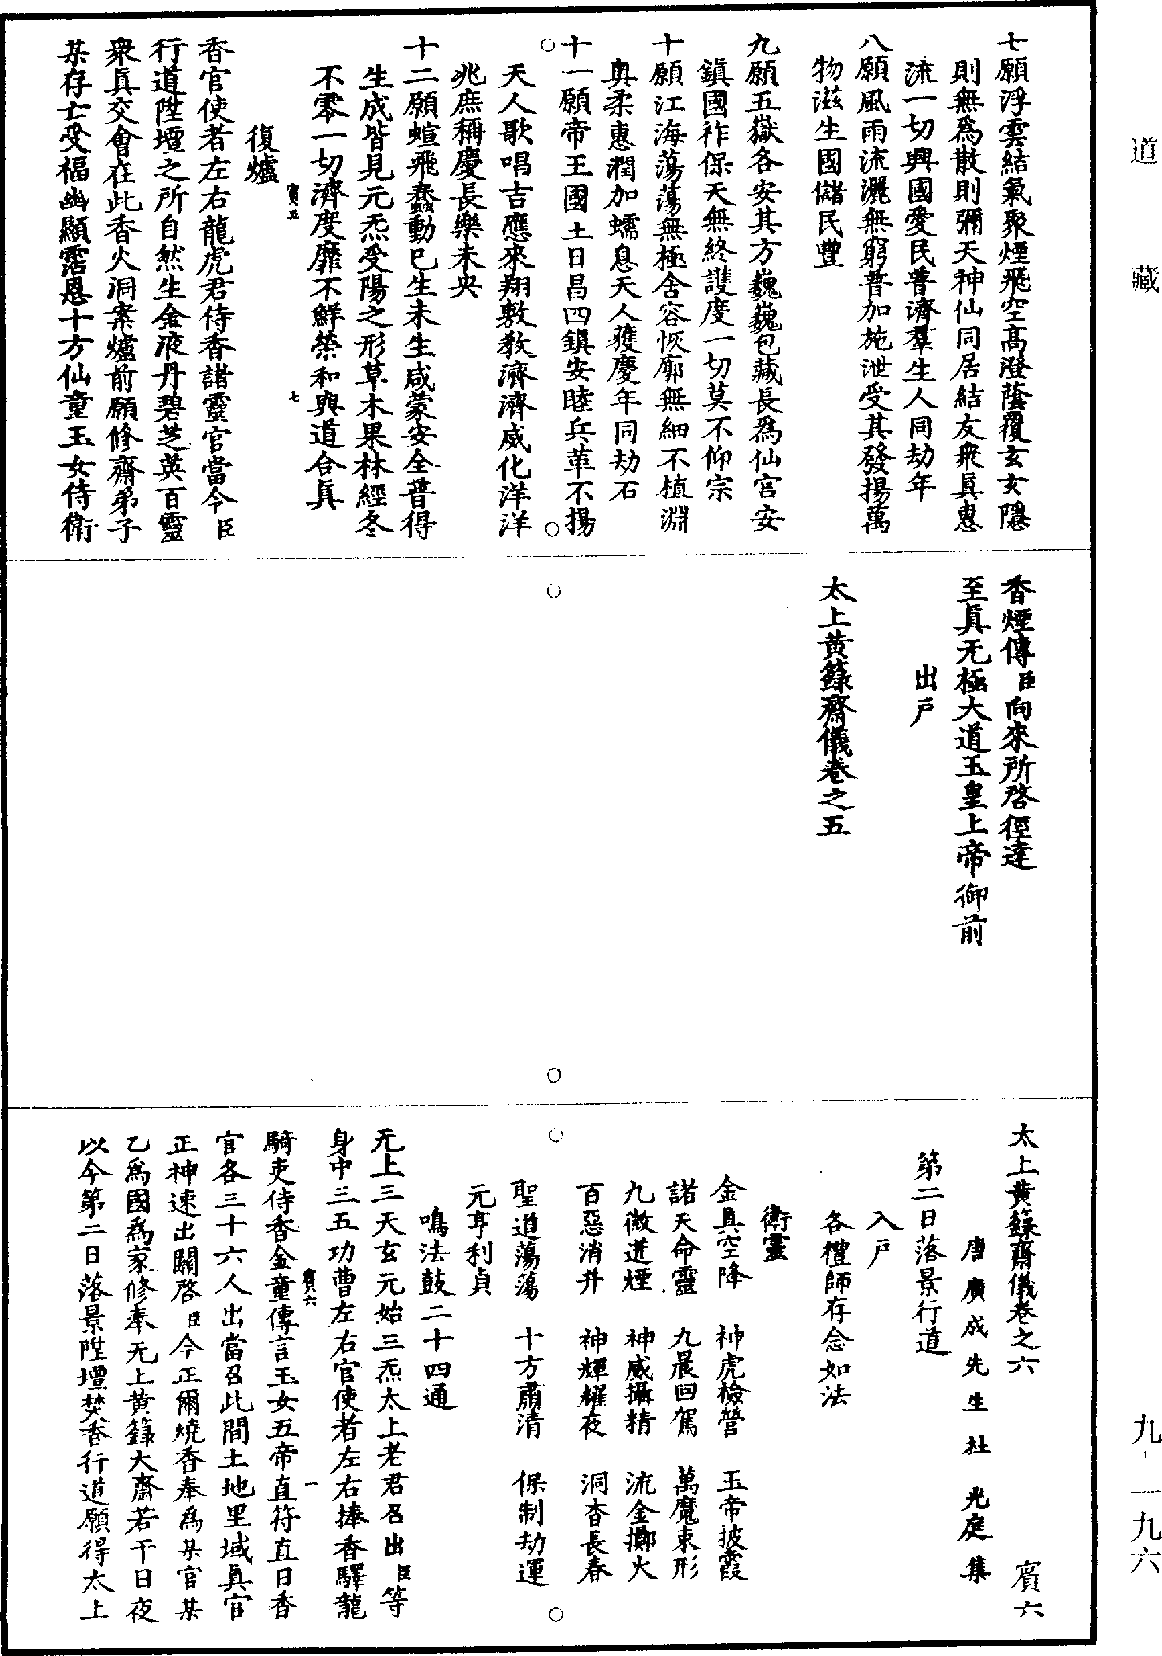 道藏
七願浮雲結氣聚煙飛空高澄蔭覆玄玄隱
則無為散則彌天神仙同居結友衆真惠
流一切興國愛民普濟羣生人同劫年
八願風雨流灑無窮普加施泄受其發揚萬
物滋生國儲民豐
九願五嶽各安其方巍巍包藏長為仙宮安
鎮國祚保天無終護度一切莫不仰宗
十願江海蕩蕩無極含容恢廓無細不植淵
奥柔惠潤加蠕息天人獲慶年同劫石
十一願帝王國土日昌四鎮安睦兵革不揚
天人歌唱吉應來翔敷教濟濟威化洋洋
兆庶稱慶長樂未央
十二願蝖飛蠢動已生未生咸蒙安全普得
生成皆見元炁受陽之形草木果林經冬
不零一切濟度靡不鮮榮和與道合真
賓五 七
復爐
香官使者左右龍虎君侍香諸靈官當令臣
行道陞壇之所自然生金液丹碧芝英百靈
衆真交會在此香火洞案爐前願修齋弟子
某存亡受福幽顯霑恩十方仙童玉女侍衛
香煙傳臣向來所啓徑達
至真无極大道玉皇上帝御前
出戶
太上黃籙齋儀卷之五
太上黃籙齋儀卷之六 賓六
唐廣成先生杜光庭集
第二日落景行道
入戶
各禮師存念如法
衛靈
金真空降 神虎檢營 玉帝披霞
諾天命靈 九晨回駕 萬魔束形
九微迸煙 神威攝精 流金擲火
百惡消井 神輝耀夜 洞杳長春
聖道蕩蕩 十方肅清 保制劫運
元亨利貞
鳴法鼓二十四通
无上三天玄元始三炁太上老君召出臣等
身中三五功曹左右官使者左右捧香驛龍
騎吏侍香金童傳言玉女五帝直符直日香
賓六 一
官各三十六人出當召此間土地里域真官
正神速出關啓臣今正爾燒香奉為某官某
乙為國為家修奉无上黃籙大齋若干日夜
以今第二日落景陞壇焚香行道願得太上
九-一九六